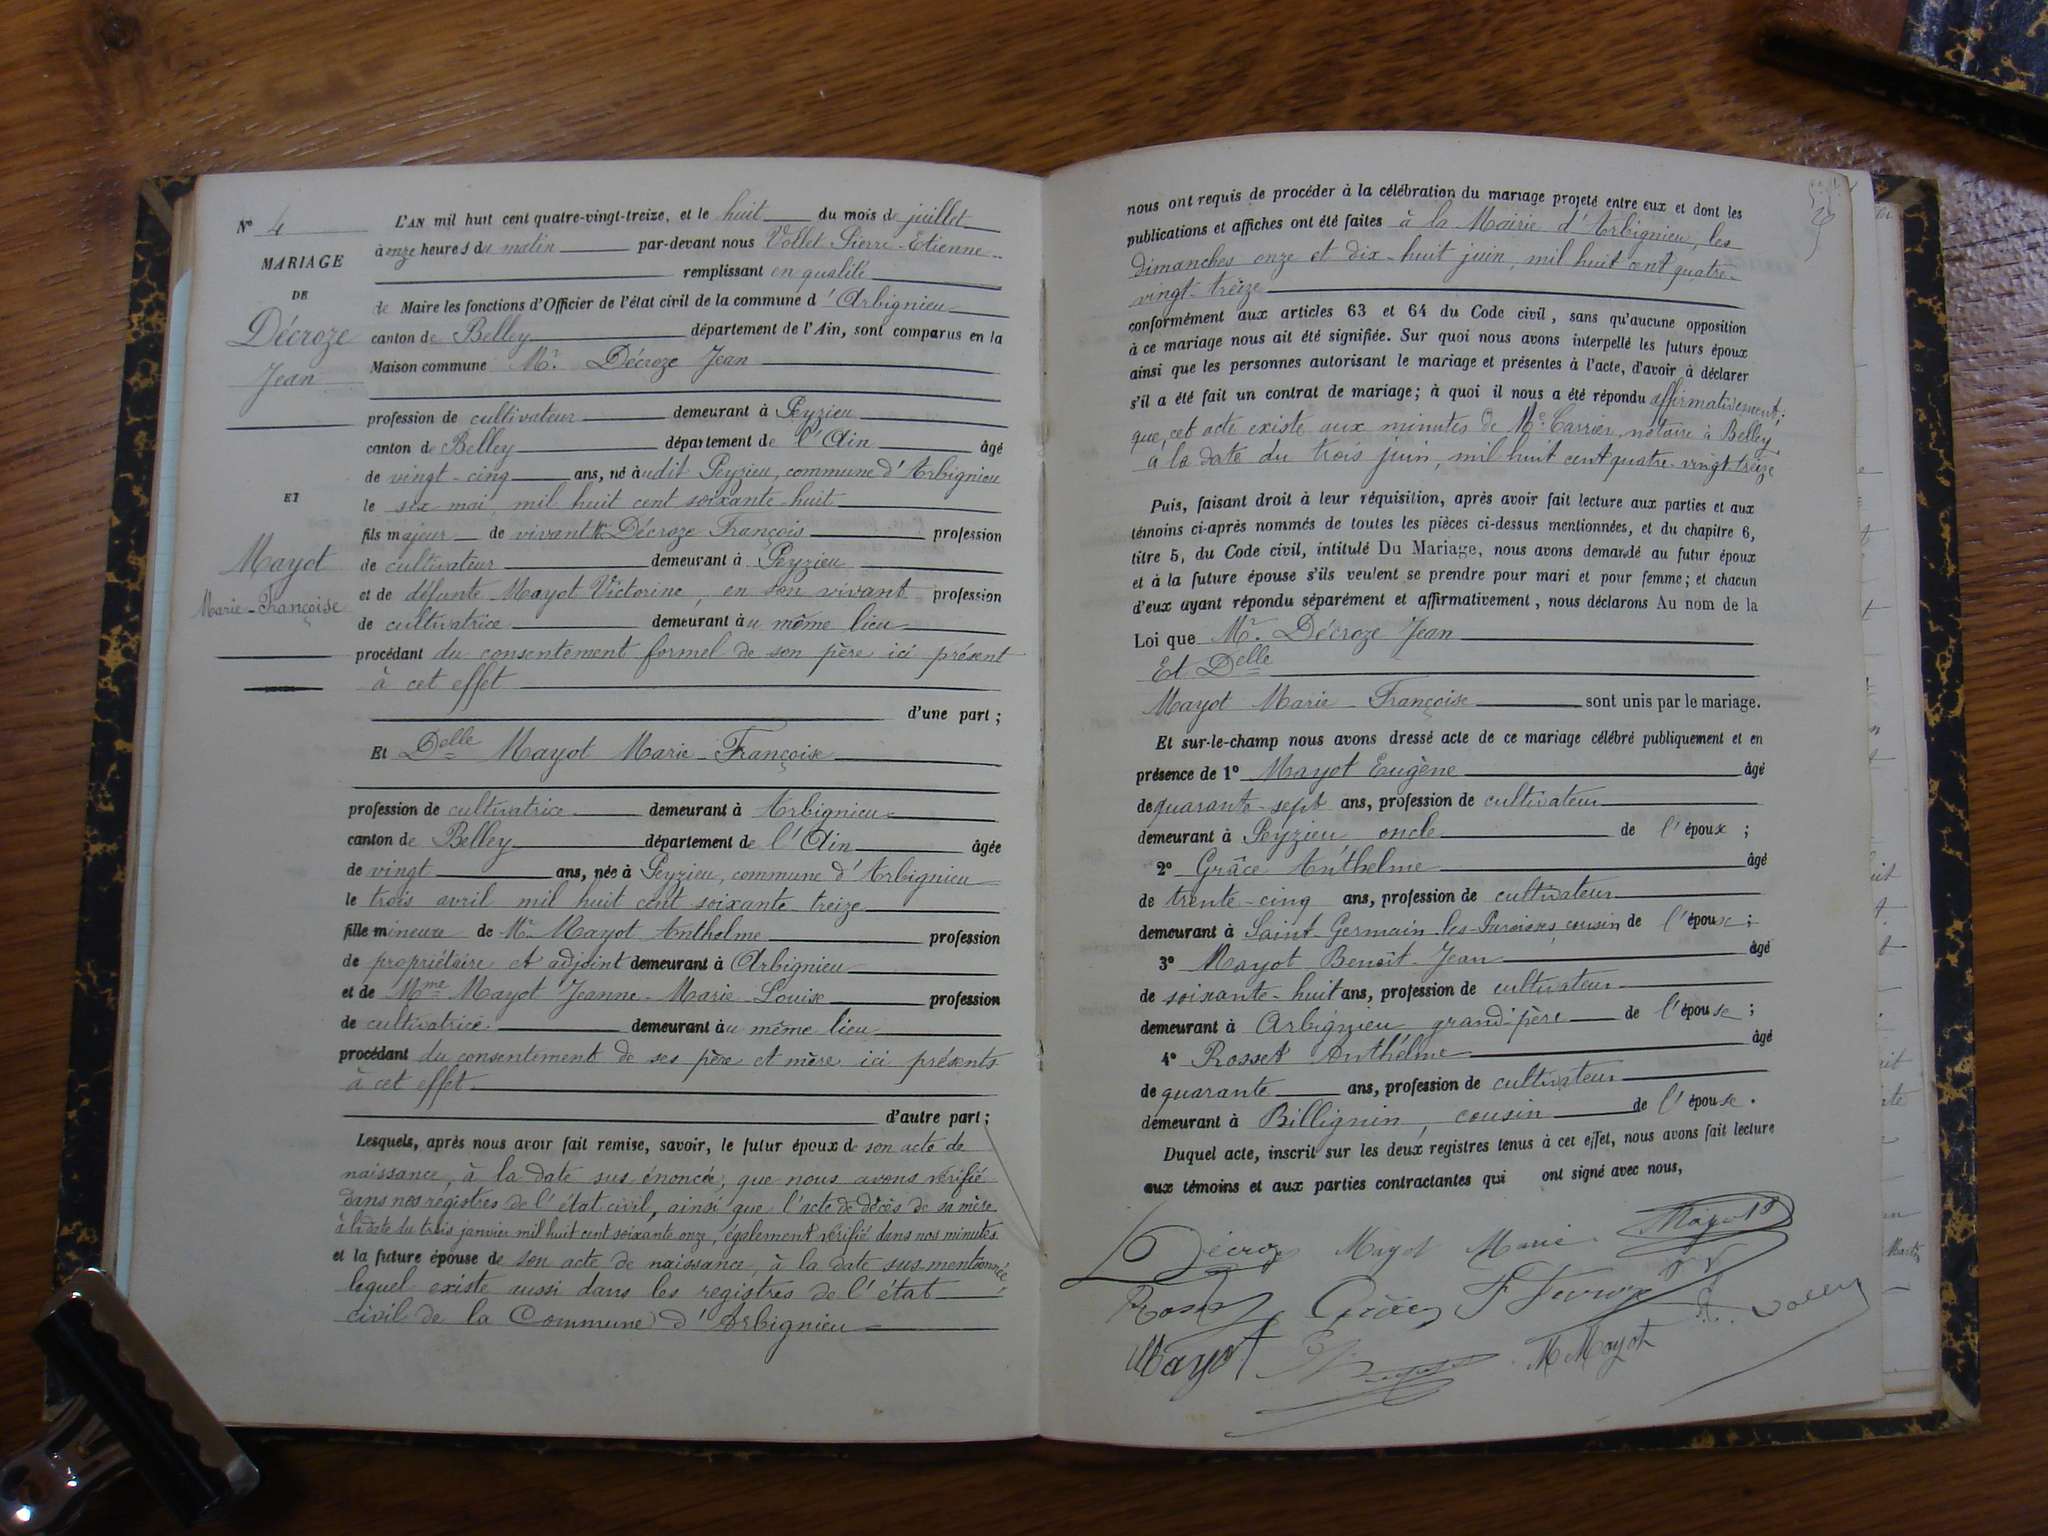 N° 4
MARIAGE
DE
Décroze
Jean
ET
Mayot
Marie-Françoise
L'AN mil huit cent quatre-vingt-treize, et le huit du mois de juillet
à onze heures du matin par-devant nous Vollet Pierre-Etienne
remplissant en qualité
de Maire les fonctions d'Officier de l'état civil de la commune d'Arbignieu
canton de Belley département de l'Ain, sont comparus en la
Maison commune Mr. Décroze Jean
profession de cultivateur demeurant à Peyzieu
canton de Belley département de l'Ain âgé
de vingt-cinq ans, né audit Peyzieu, commune d'Arbignieu
le six mai, mil huit cent soixante-huit
fils majeur de vivant Décroze François profession
de cultivateur demeurant à Peyzieu
et de défunte Mayot Victorine, en son vivant profession
de cultivatrice demeurant au même lieu
procédant du consentement formel de son père ici présent
à cet effet
d'une part ;
Et Delle Mayot Marie-Françoise
profession de cultivatrice demeurant à Arbignieu
canton de Belley département de l'Ain âgée
de vingt ans, née à Peyzieu, commune d'Arbignieu
le trois avril mil huit cent soixante-treize
fille mineure de Mr Mayot Anthelme profession
de propriétaire et adjoint demeurant à Arbignieu
et de Mme Mayot Jeanne-Marie-Louise profession
de cultivatrice demeurant au même lieu
procédant du consentement de ses père et mère ici présents
à cet effet
d'autre part ;
Lesquels, après nous avoir fait remise, savoir, le futur époux de son acte de
naissance, à la date sus énoncée, que nous avons vérifié
dans nos registres de l'état civil, ainsi que l'acte de décès de sa mère
à la date du trois janvier mil huit cent soixante onze, également vérifié dans nos minutes
et la future épouse de son acte de naissance, à la date sus mentionnée
lequel existe aussi dans les registres de l'état
civil de la Commune d'Arbignieu
nous ont requis de procéder à la célébration du mariage projeté entre eux et dont les
publications et affiches ont été faites à la Mairie d'Arbignieu, les
dimanches onze et dix-huit juin, mil huit cent quatre-
vingt-treize
conformément aux articles 63 et 64 du Code civil, sans qu'aucune opposition
à ce mariage nous ait été signifiée. Sur quoi nous avons interpellé les futurs époux
ainsi que les personnes autorisant le mariage et présentes à l'acte, d'avoir à déclarer
s'il a été fait un contrat de mariage ; à quoi il nous a été répondu affirmativement ;
que cet acte existe aux minutes de Me Carrier, notaire à Belley
à la date du trois juin, mil huit cent quatre-vingt-treize
Puis, faisant droit à leur réquisition, après avoir fait lecture aux parties et aux
témoins ci-après nommés de toutes les pièces ci-dessus mentionnées, et du chapitre 6,
titre 5, du Code civil, intitulé Du Mariage, nous avons demandé au futur époux
et à la future épouse s'ils veulent se prendre pour mari et pour femme ; et chacun
d'eux ayant répondu séparément et affirmativement, nous déclarons Au nom de la
Loi que Mr. Décroze Jean
Et Delle
Mayot Marie-Françoise sont unis par le mariage.
Et sur-le-champ nous avons dressé acte de ce mariage célébré publiquement et en
présence de 1° Mayot Eugène âgé
de quarante-sept ans, profession de cultivateur
demeurant à Peyzieu oncle de l'époux ;
2° Grâce Anthelme âgé
de trente-cinq ans, profession de cultivateur
demeurant à Saint-Germain-les-Paroisses, cousin de l'époux ;
3° Mayot Benoît-Jean âgé
de soixante-huit ans, profession de cultivateur
demeurant à Arbignieu grand-père de l'épouse ;
4° Rosset Anthelme âgé
de quarante ans, profession de cultivateur
demeurant à Billignin, cousin de l'épouse.
Duquel acte, inscrit sur les deux registres tenus à cet effet, nous avons fait lecture
aux témoins et aux parties contractantes qui ont signé avec nous,
Décroze Mayot Marie Mayot
Mayot M Mayot